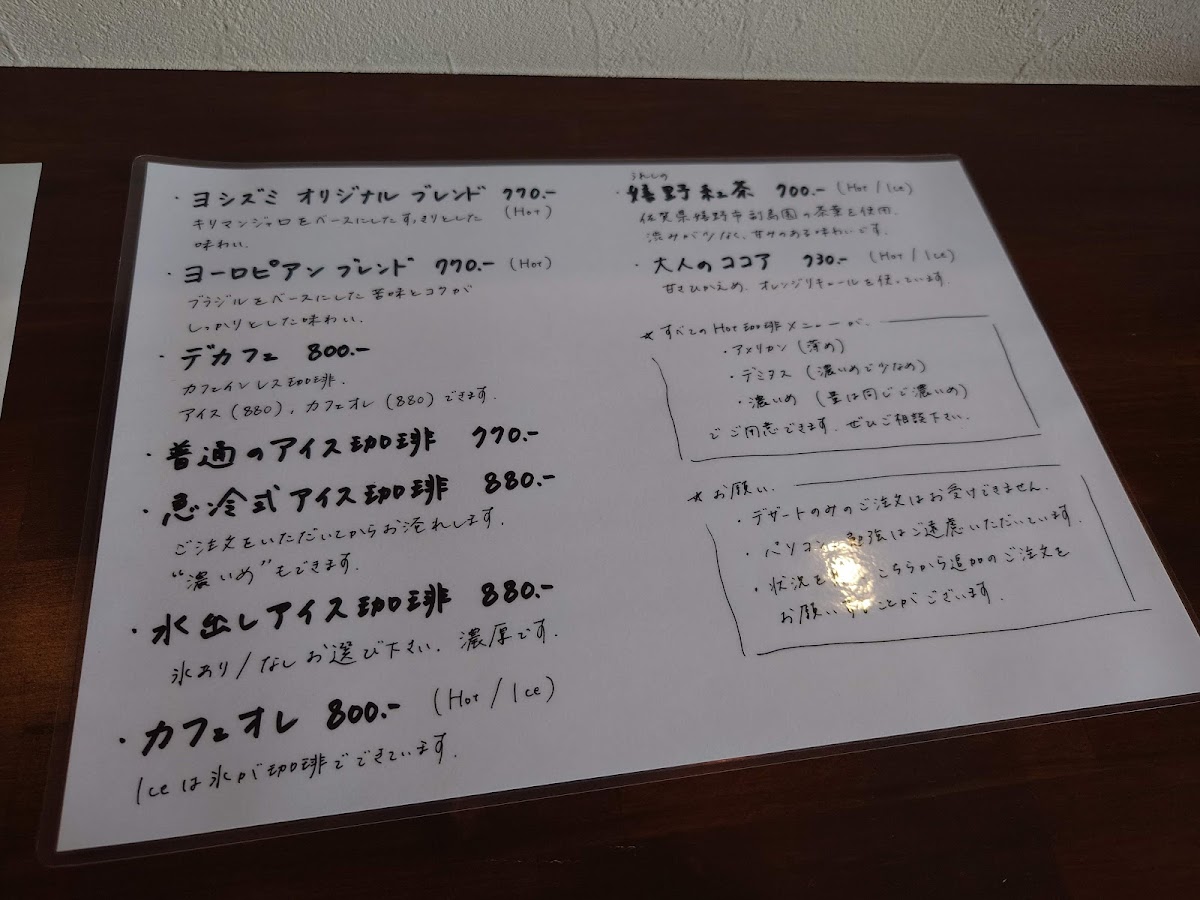 ・ヨシズミ オリジナル ブレンド 770.-
(Hot)
キリマンジャロをベースにしたすっきりとした
味わい.
・ヨーロピアン ブレンド 770.- (Hot)
ブラジルをベースにした苦味とコクが
しっかりとした味わい.
・デカフェ 800.-
カフェインレス珈琲.
アイス(880)、カフェオレ(880)できます.
・普通のアイス珈琲 770.-
・急冷式アイス珈琲 880.-
ご注文をいただいてからお淹れします.
"濃いめ"もできます.
・水出しアイス珈琲 880.-
氷あり/なしお選び下さい. 濃厚です.
・カフェオレ 800.- (Hot / Ice)
Iceは氷が珈琲でできています.
うれしの
・嬉野紅茶 700.- (Hot / Ice)
佐賀県嬉野市副島園の茶葉を使用.
渋みが少なく、甘みのある味わいです.
・大人のココア 730.- (Hot / Ice)
甘さひかえめ. オレンジリキュールを使っています.
☆すべてのHot珈琲メニューが、
・アメリカン (薄め)
・デミタス (濃いめで少なめ)
・濃いめ (量は同じで濃いめ)
でご用意できます. ぜひご相談下さい.
☆お願い.
・デザートのみのご注文はお受けできません.
・パソコン 勉強はご遠慮いただいています.
・状況を こちらから追加のご注文を
お願い することがございます.